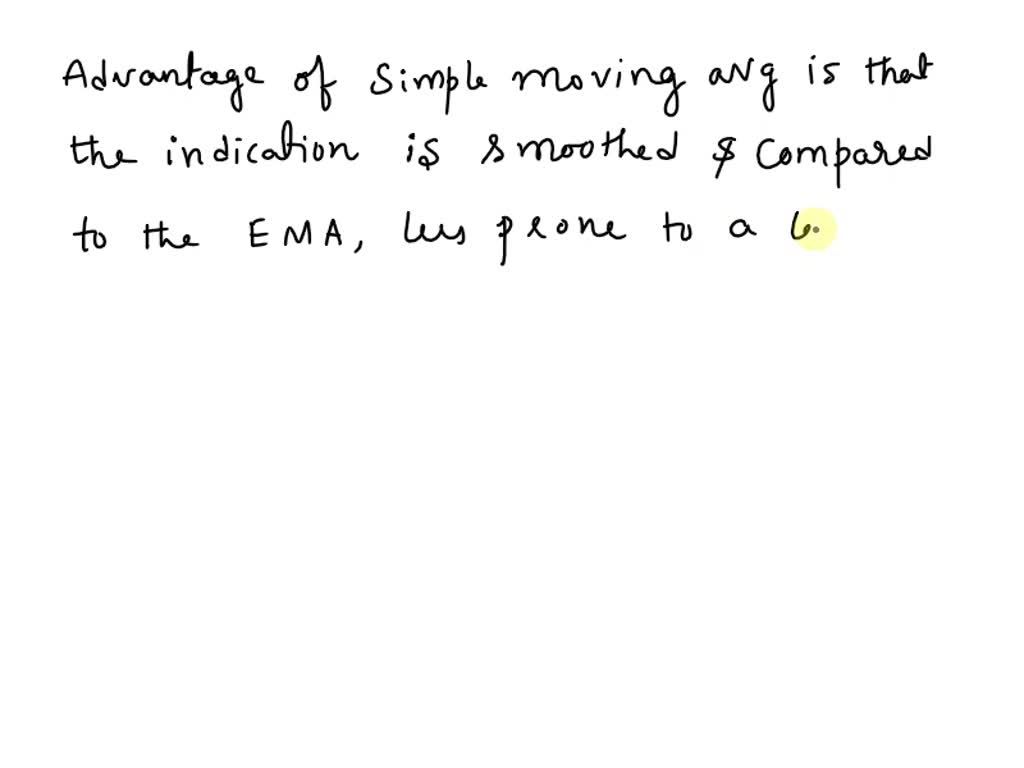 Advantage of simple moving avg is that
the indication is smoothed & compared
to the EMA, less prone to a